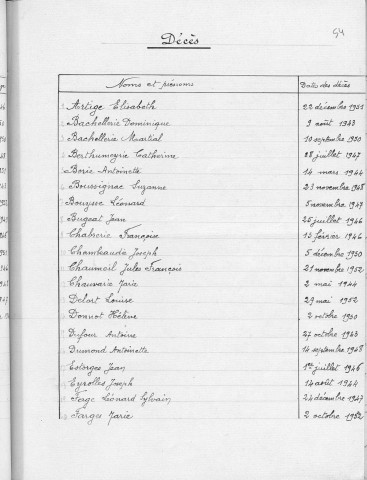 54
Décès
Noms et prénoms Dates des décès
Artige Elisabeth 22 décembre 1951
Bachellerie Dominique 9 août 1943
Bachellerie Martial 10 septembre 1950
Berthumeyrie Catherine 28 juillet 1947
Borie Antoinette 14 mars 1944
Boussignac Suzanne 21 novembre 1948
Bouysse Léonard 5 novembre 1947
Bugeat Jean 26 juillet 1946
Chabrerie Françoise 15 février 1946
Chambaudie Joseph 5 décembre 1950
Chaumeil Jules François 21 novembre 1952
Chauvarie Marie 2 mai 1944
Delort Louise 29 mai 1952
Donnot Hélène 2 octobre 1950
Dufour Antoine 27 octobre 1943
Dumond Antoinette 14 septembre 1948
Estorges Jean 1er juillet 1946
Eyrolles Joseph 14 août 1944
Farge Léonard Sylvain 24 décembre 1947
Farges Marie 2 octobre 1952